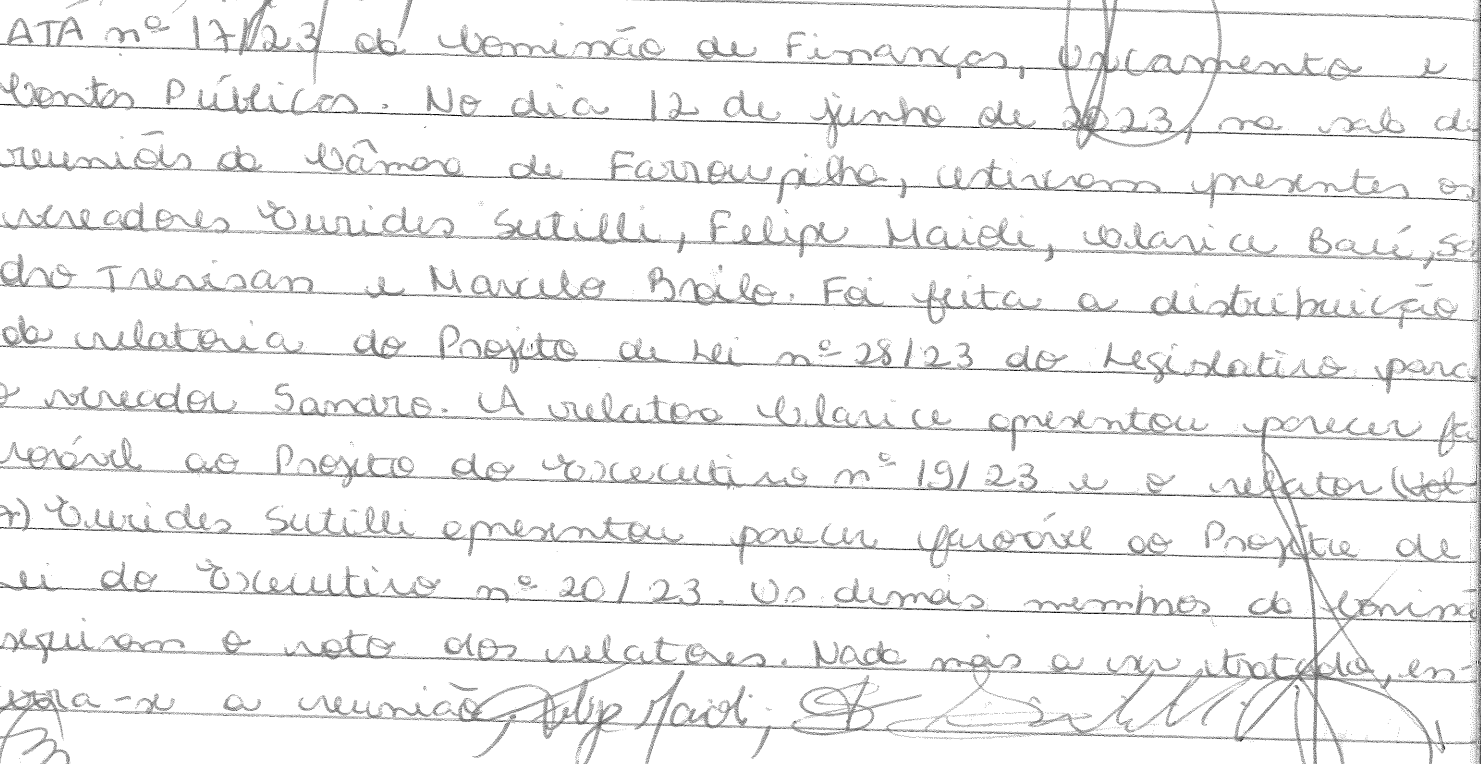 ATA nº 17/23 da Comissão de Finanças, Orçamento e
Contas Públicas. No dia 12 de junho de 2023, na sala de
reuniões da Câmara de Farroupilha, estiveram presentes os
vereadores Eurides Sutilli, Felipe Maioli, Clarice Baú, San
dro Trevisan e Marcelo Broilo. Foi feita a distribuição
da relatoria do Projeto de Lei nº 28/23 do Legislativo para
o vereador Sandro. A relatora Clarice apresentou parecer fa
vorável ao Projeto do Executivo nº 19/23 e o relator
Eurides Sutilli apresentou parecer favorável ao Projeto de
Lei do Executivo nº 20/23. Os demais membros da Comissão
seguiram o voto dos relatores. Nada mais a ser tratado, en-
cerra-se a reunião. Felipe Maioli;